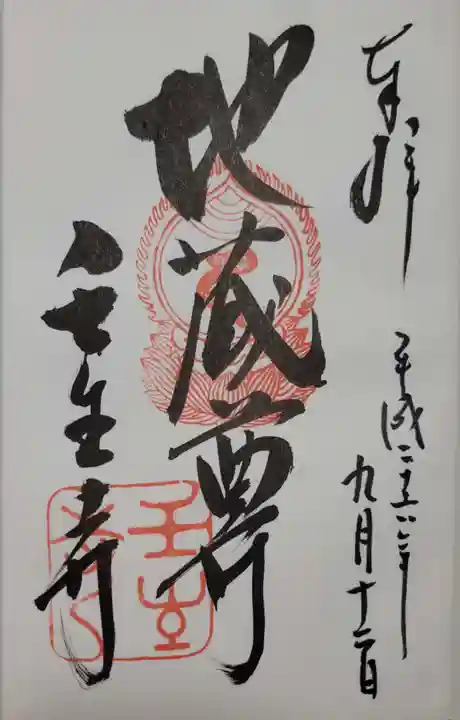 奉拝
平成二十六年
九月十二日
地蔵尊
壬生寺